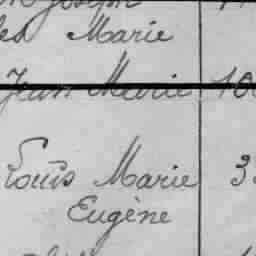 Joseph
Marie
Jean Marie 10
Louis Marie 3
Eugène